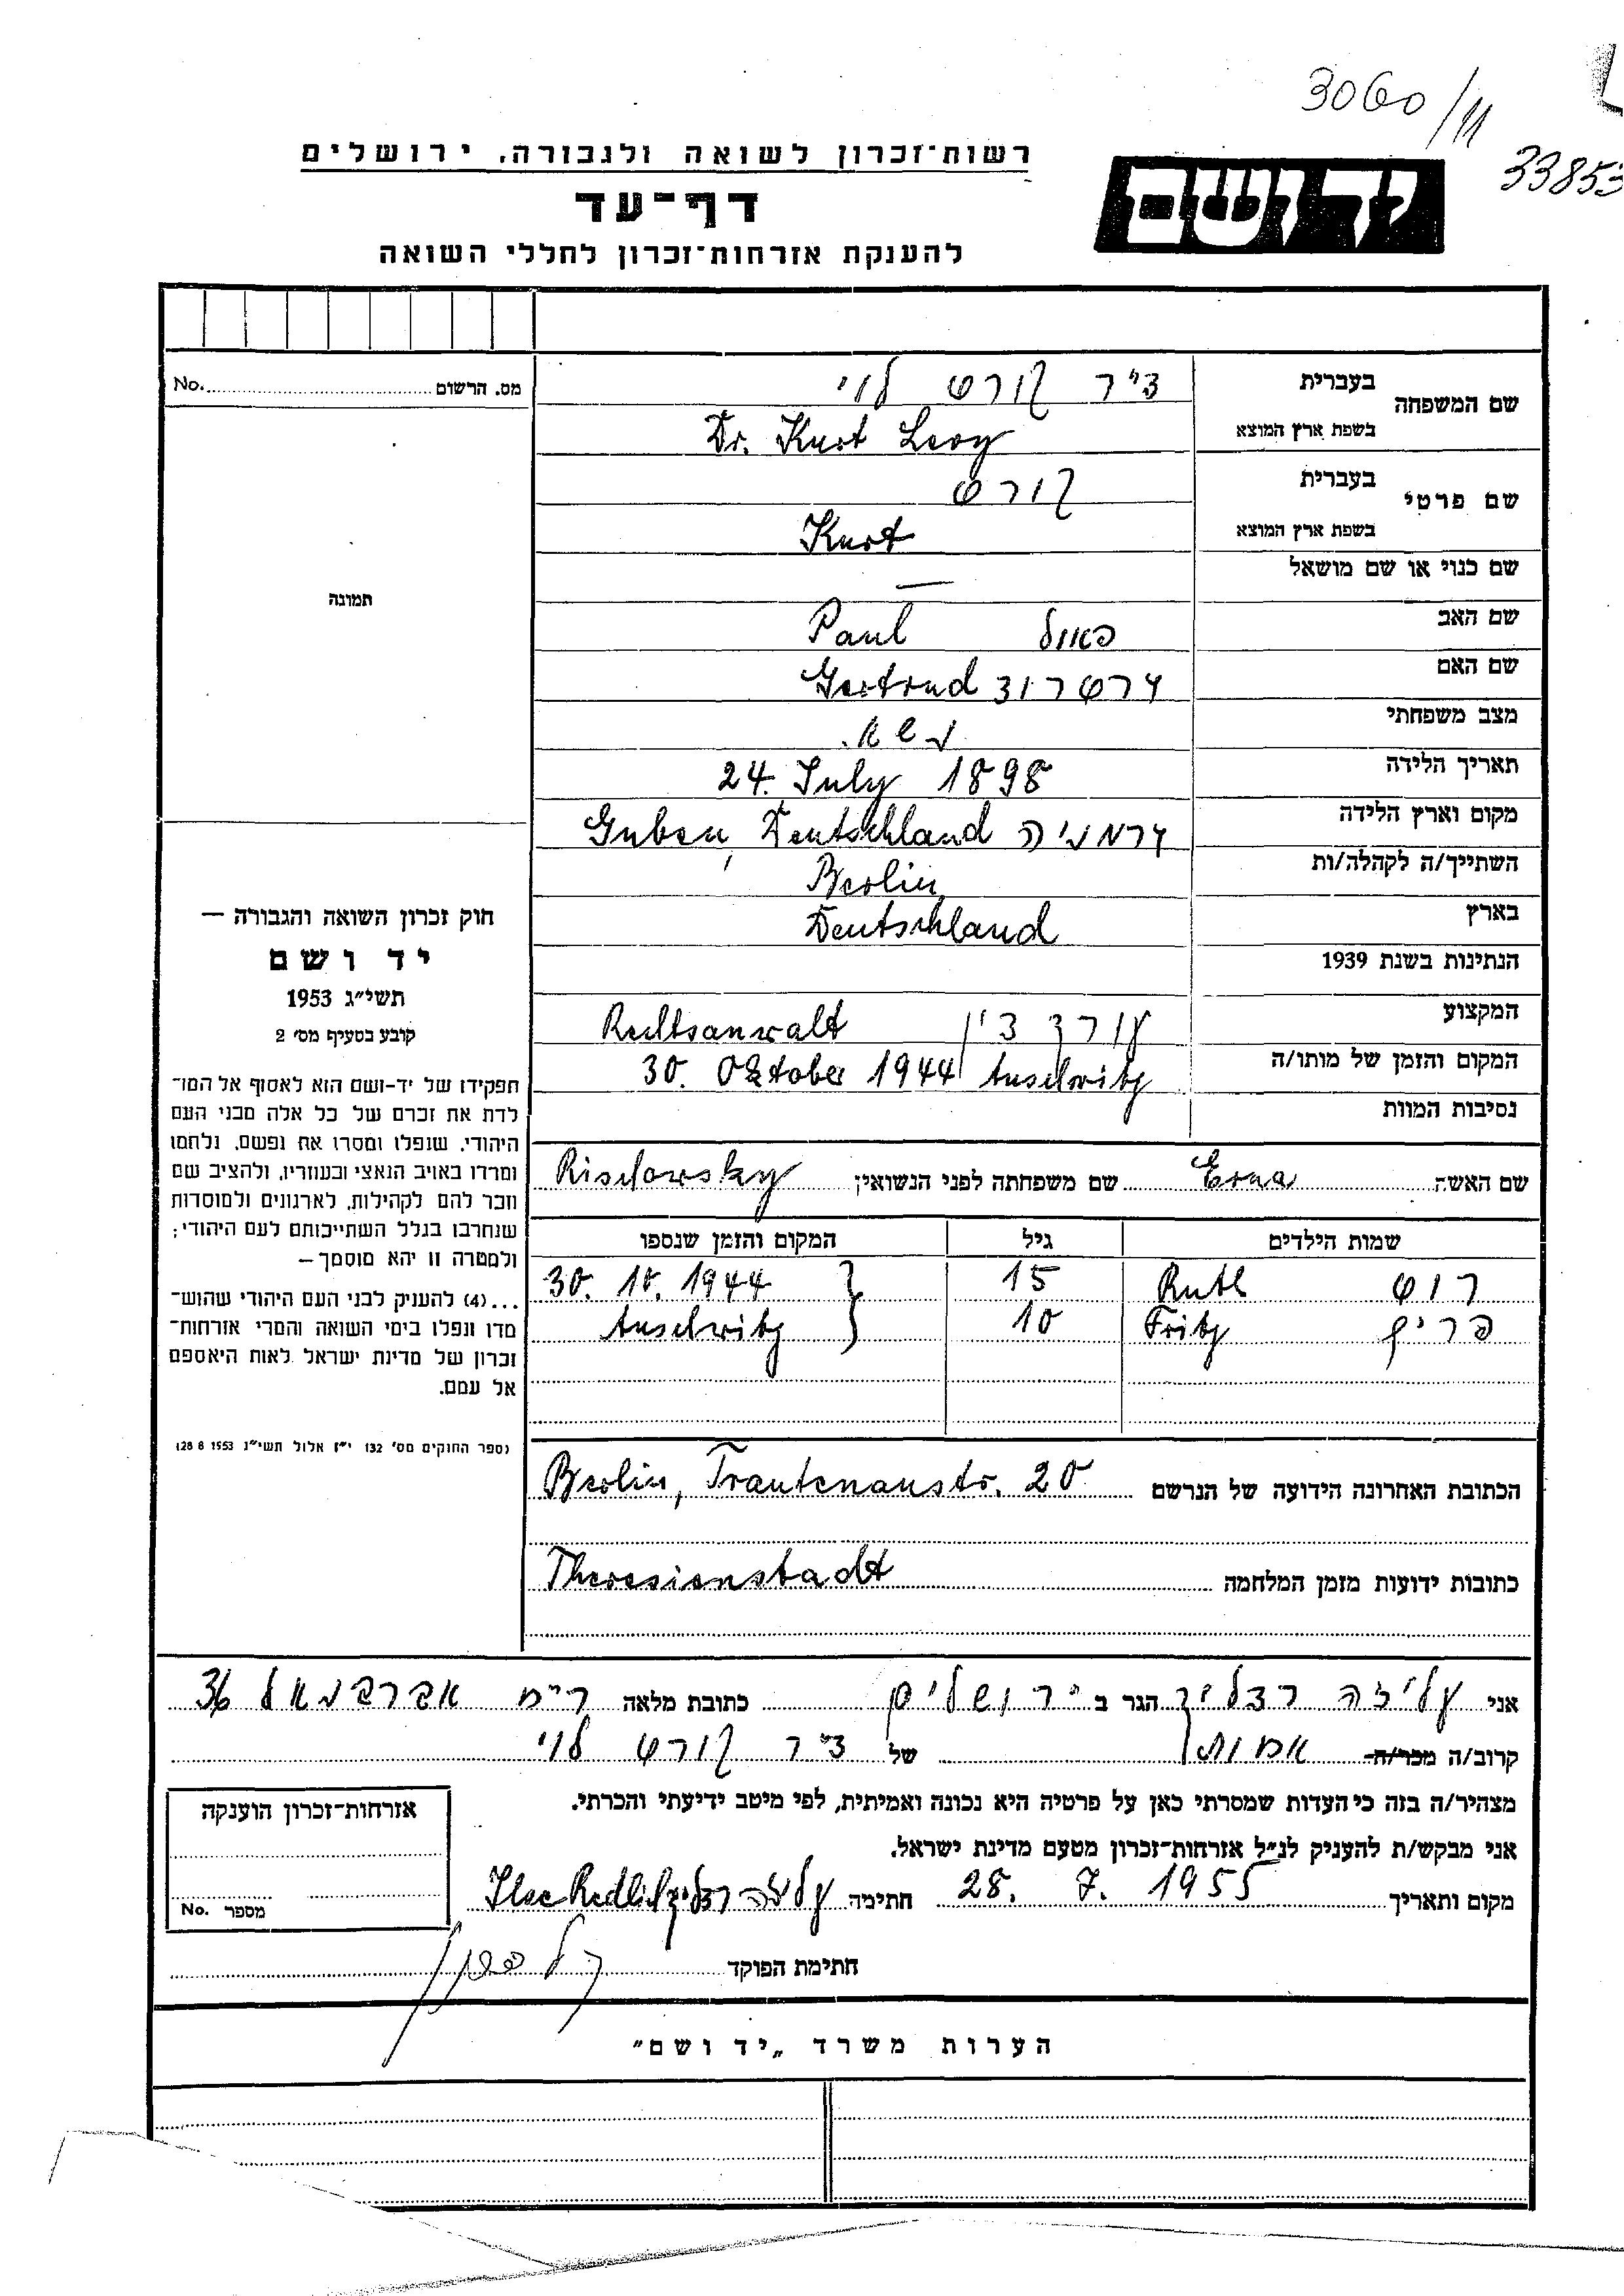 3060/11
33853
רשות־זכרון לשואה ולגבורה, ירושלים
יד ושם
דף־עד
להענקת אזרחות־זכרון לחללי השואה
מס. הרשום No.
תמונה
חוק זכרון השואה והגבורה —
יד ושם
תשי״ג 1953
קובע בסעיף מס׳ 2
תפקידו של יד־ושם הוא לאסוף אל המו־
לדת את זכרם של כל אלה מבני העם
היהודי, שנפלו ומסרו את נפשם, נלחמו
ומרדו באויב הנאצי ובעוזריו, ולהציב שם
וזכר להם לקהילות, לארגונים ולמוסדות
שנחרבו בגלל השתייכותם לעם היהודי;
ולמטרה זו יהא מוסמך —
...(4) להעניק לבני העם היהודי שהוש־
מדו ונפלו בימי השואה והמרי אזרחות־
זכרון של מדינת ישראל לאות היאספם
אל עמם.
(ספר החוקים מס׳ 132 י״ז אלול תשי״ג 28 8 1953)
שם המשפחה בעברית ד״ר קורט לוי
בשפת ארץ המוצא Dr. Kurt Levy
שם פרטי בעברית קורט
בשפת ארץ המוצא Kurt
שם כנוי או שם מושאל —
שם האב פאול Paul
שם האם גרטרוד Gertrud
מצב משפחתי נשא.
תאריך הלידה 24. July 1898
מקום וארץ הלידה גרמניה Guben, Deutschland
השתייך/ה לקהלה/ות Berlin
בארץ Deutschland
הנתינות בשנת 1939
המקצוע עורך דין Rechtsanwalt
המקום והזמן של מותו/ה 30. Oktober 1944 Auschwitz
נסיבות המוות
שם האשה Erna שם משפחתה לפני הנשואין Rischowsky
שמות הילדים גיל המקום והזמן שנספו
רוט Ruth 15 30. 10. 1944
פריץ Fritz 10 Auschwitz
הכתובת האחרונה הידועה של הנרשם Berlin, Trautenaustr. 20
כתובות ידועות מזמן המלחמה Theresienstadt
אני עליזה רדליך הגר ב ירושלים כתובת מלאה רח׳ אברבנאל 36
קרוב/ה מכר/ה אחות של ד״ר קורט לוי
מצהיר/ה בזה כי העדות שמסרתי כאן על פרטיה היא נכונה ואמיתית, לפי מיטב ידיעתי והכרתי.
אני מבקש/ת להעניק לנ״ל אזרחות־זכרון מטעם מדינת ישראל.
מקום ותאריך 28. 7. 1955 חתימה עליזה רדליך Ilse Redlich
חתימת הפוקד
אזרחות־זכרון הוענקה
מספר No.
הערות משרד „יד ושם״